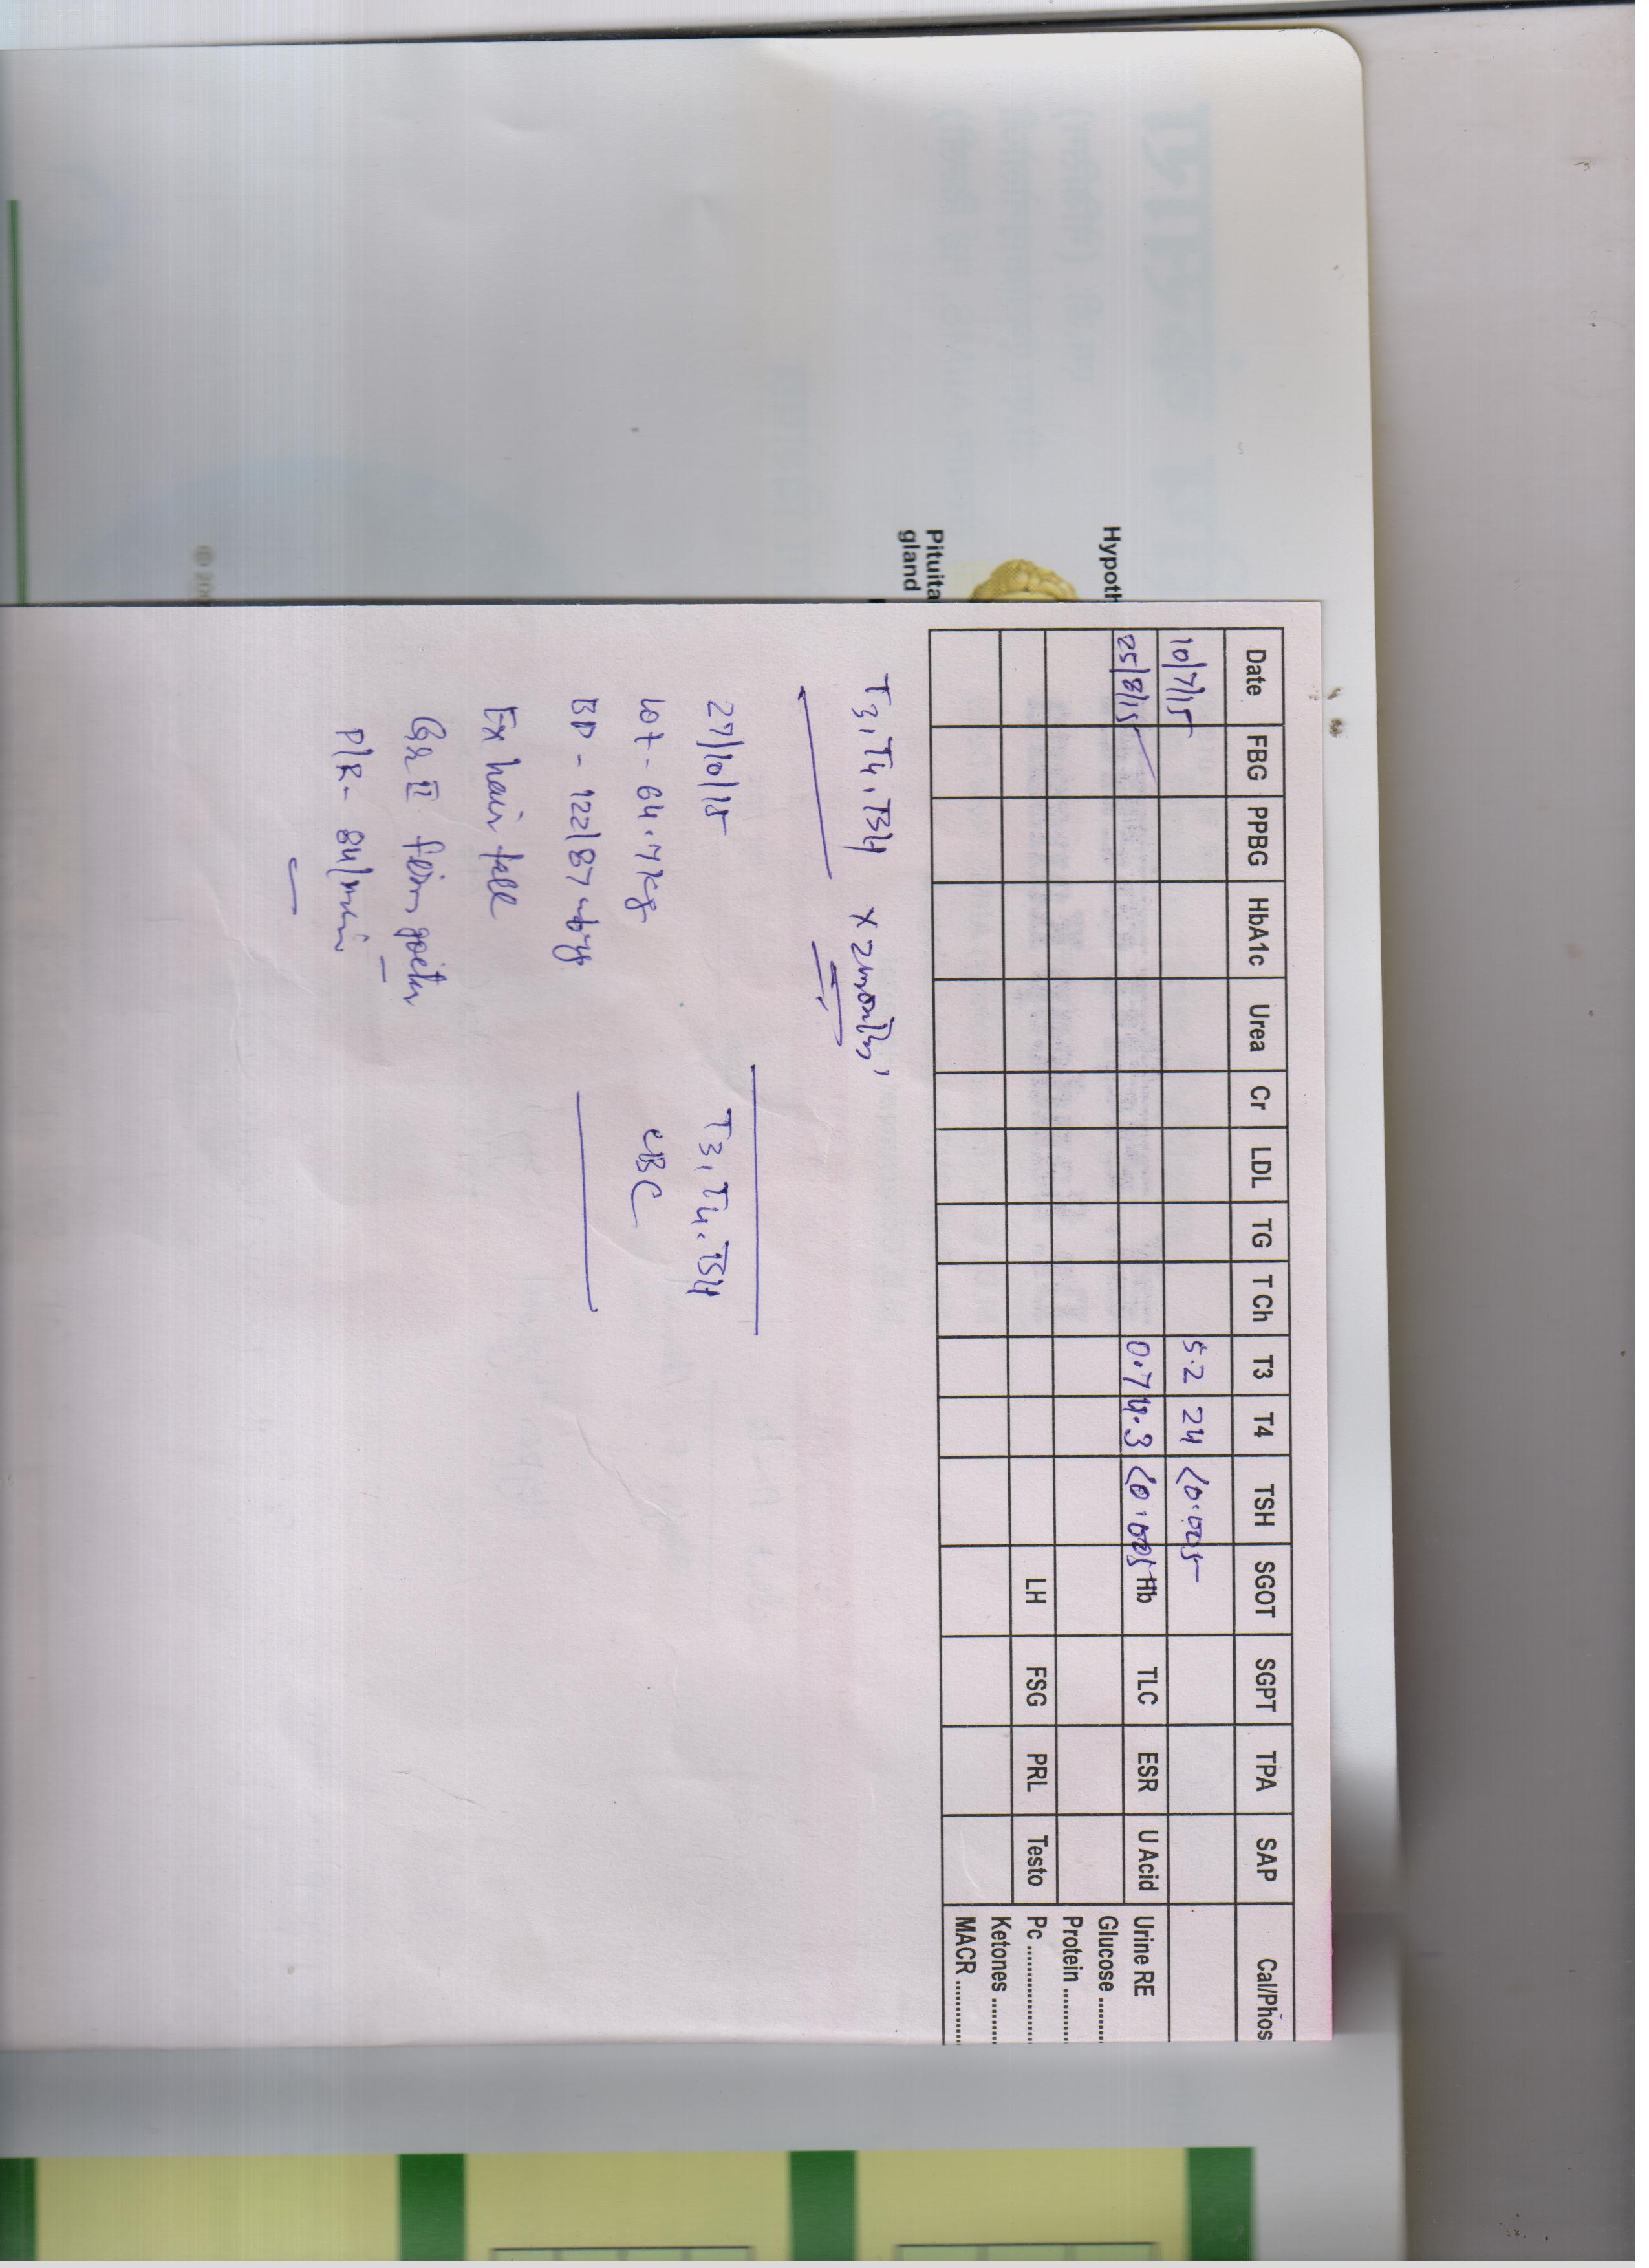 Hypoth
Pituita
gland
Date FBG PPBG HbA1c Urea Cr LDL TG T Ch T3 T4 TSH SGOT SGPT TPA SAP Cal/Phos
10/7/15 5.2 24 <0.005
25/8/15 0.7 4.3 <0.005 Hb TLC ESR U Acid Urine RE
Glucose ........
Protein ..........
LH FSG PRL Testo Pc ................
Ketones ........
MACR ...........
T3, T4, TSH x 2 months
27/10/15 T3, T4, TSH
wt - 64.7 kg CBC
BP - 122/87 mmHg
Ex hair fall
Gr II firm goiter
P/R - 84/min